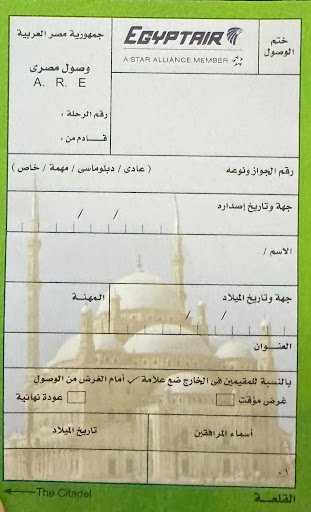 جمهورية مصر العربية
EGYPTAIR
A STAR ALLIANCE MEMBER
ختم
الوصول
وصول مصرى
A. R. E
رقم الرحلة :
قادم من :
رقم الجواز ونوعه
( عادى / دبلوماسى / مهمة / خاص )
جهة وتاريخ إصداره
/ /
الاسم /
جهة وتاريخ الميلاد
/ /
المهنة
العنـــوان
بالنسبة للمقيمين فى الخارج ضع علامة ✓ أمام الغرض من الوصول
غرض مؤقت
عودة نهائية
أسماء المرافقين
تاريخ الميلاد
١.
القلعـــة
The Citadel